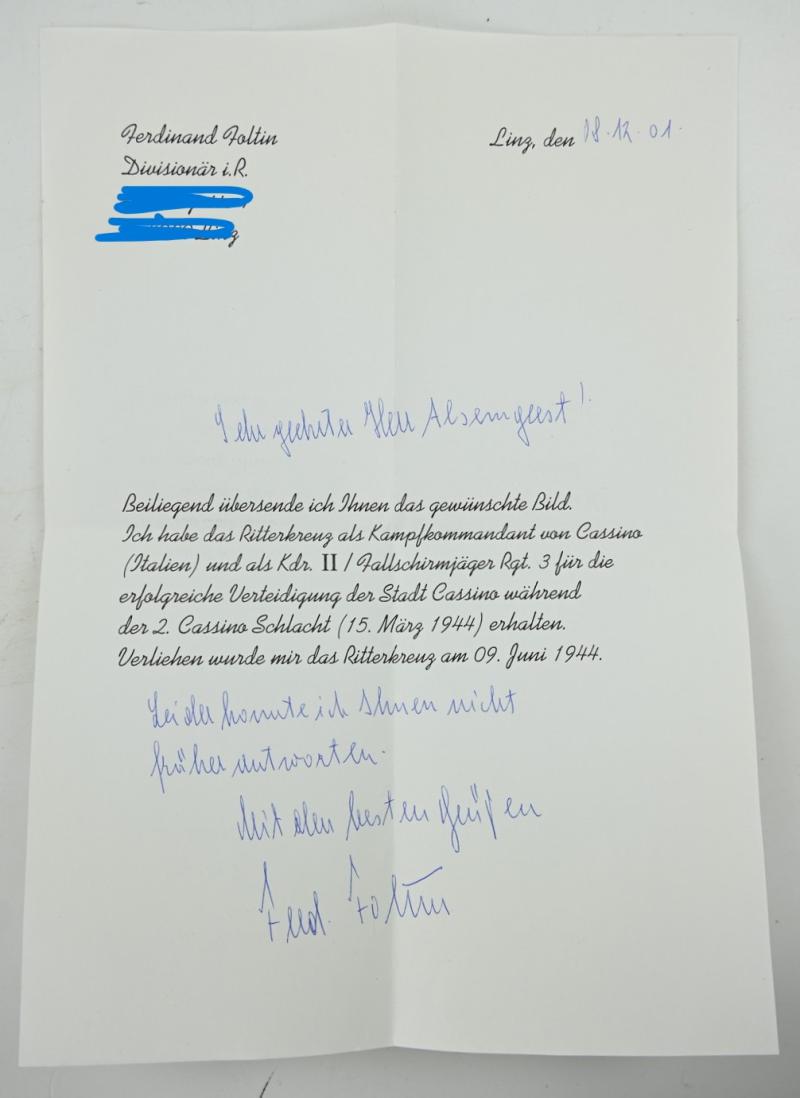 Ferdinand Foltin
Linz, den 08.12.01.
Divisionär i.R.
Sehr geehrter Herr Alsemgeest!
Beiliegend übersende ich Ihnen das gewünschte Bild.
Ich habe das Ritterkreuz als Kampfkommandant von Cassino
(Italien) und als Kdr. II / Fallschirmjäger Rgt. 3 für die
erfolgreiche Verteidigung der Stadt Cassino während
der 2. Cassino Schlacht (15. März 1944) erhalten.
Verliehen wurde mir das Ritterkreuz am 09. Juni 1944.
Leider konnte ich Ihnen nicht
früher antworten.
Mit den besten Grüßen
Ferd. Foltin